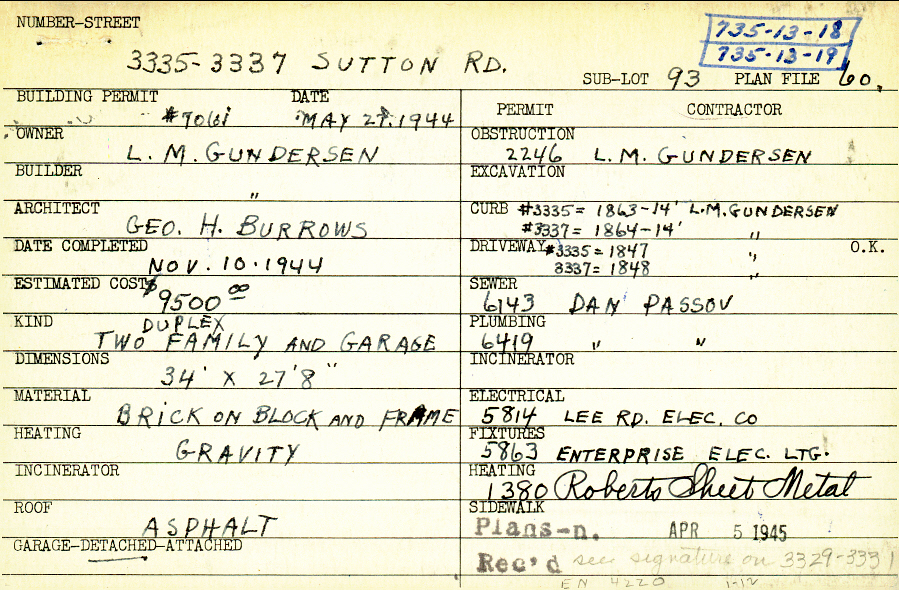 NUMBER-STREET
735-13-18
735-13-19
3335-3337 SUTTON RD.
SUB-LOT 93 PLAN FILE 60.
BUILDING PERMIT DATE
#7061 MAY 27.1944
OWNER
L. M. GUNDERSEN
BUILDER
"
ARCHITECT
GEO. H. BURROWS
DATE COMPLETED
NOV. 10.1944
ESTIMATED COST
$9500 00
KIND DUPLEX
TWO FAMILY AND GARAGE
DIMENSIONS
34' X 27'8"
MATERIAL
BRICK ON BLOCK AND FRAME
HEATING
GRAVITY
INCINERATOR
ROOF
ASPHALT
GARAGE-DETACHED-ATTACHED
PERMIT CONTRACTOR
OBSTRUCTION
2246 L. M. GUNDERSEN
EXCAVATION
CURB #3335 = 1863-14' L.M. GUNDERSEN
#3337 = 1864-14' "
DRIVEWAY #3335 = 1847 " O.K.
3337 = 1848 "
SEWER
6143 DAN PASSOV
PLUMBING
6419 " "
INCINERATOR
ELECTRICAL
5814 LEE RD. ELEC. CO
FIXTURES
5863 ENTERPRISE ELEC. LTG.
HEATING
1380 Roberts Sheet Metal
SIDEWALK
Plans-n. APR 5 1945
Rec'd see signature on 3329-3331
EN 4220 1-12